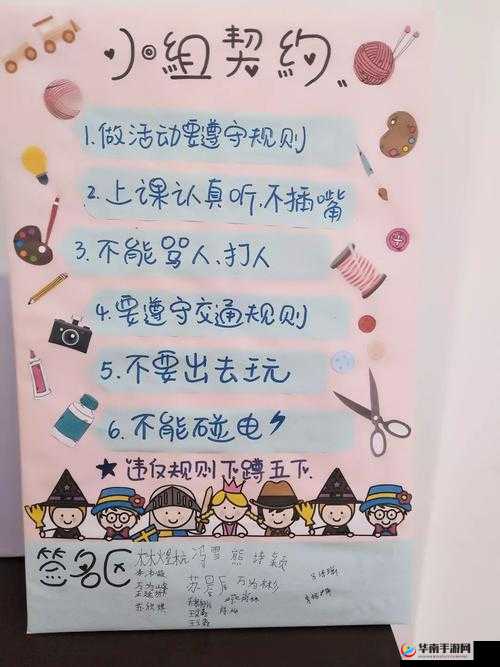 小组契约
1.做活动要遵守规则
2.上课认真听,不插嘴
3.不能骂人、打人
4.要遵守交通规则
5.不要出去玩
6.不能碰电
★违反规则下蹲五下.
签名区
冯雪 熊诗颖
华南手游网